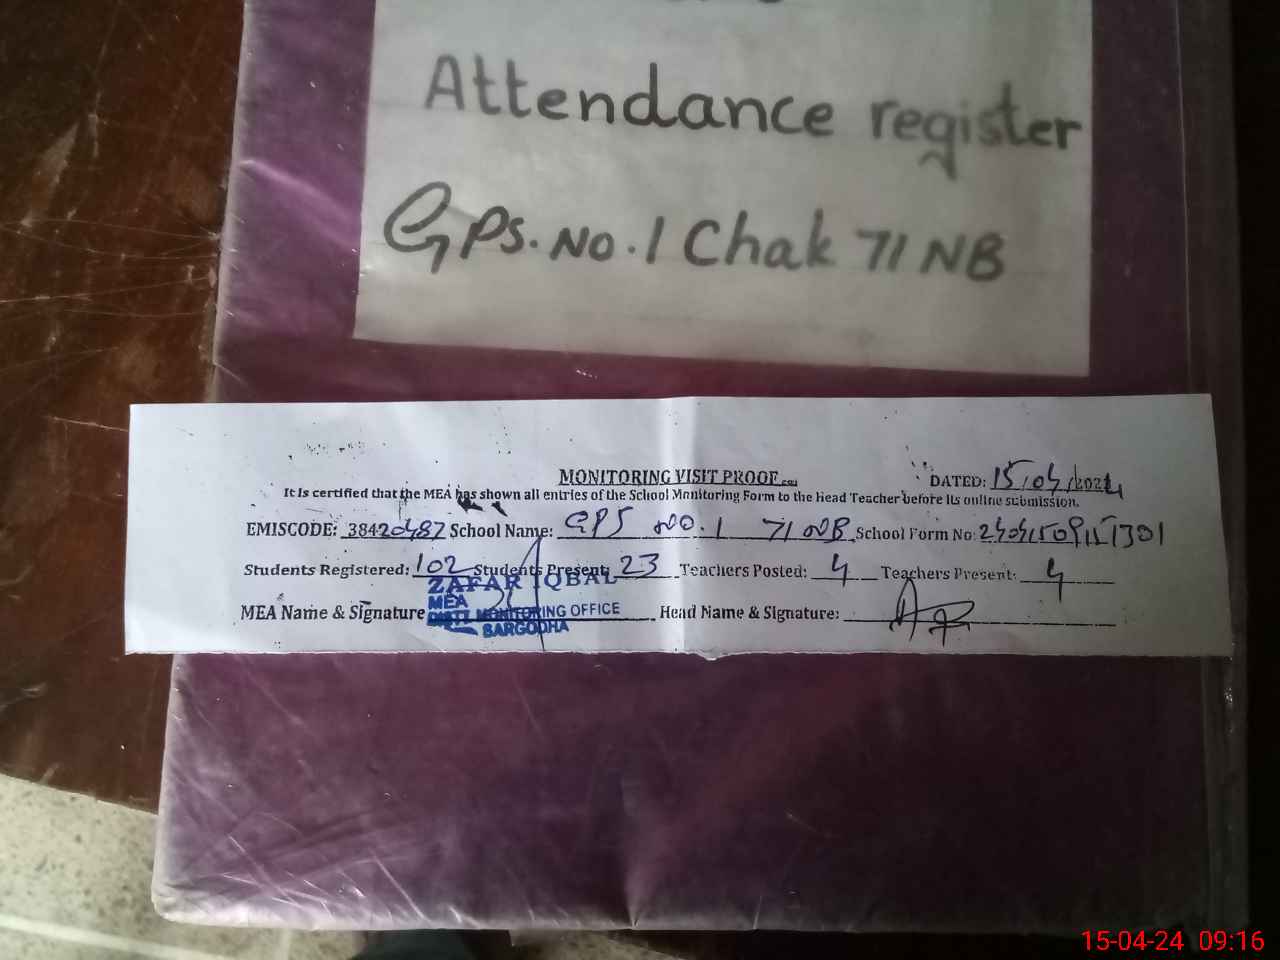 Attendance register
GPS. No. 1 Chak 71 NB
MONITORING VISIT PROOF
DATED: 15/04/2024
It is certified that the MEA has shown all entries of the School Monitoring Form to the Head Teacher before its online submission.
EMISCODE: 38420487 School Name: GPS No. 1 71 NB School Form No:
Students Registered: 102 Students Present: 23 Teachers Posted: 4 Teachers Present: 4
ZAFAR IQBAL
MEA
MEA Name & Signature Head Name & Signature:
DISTT MONITORING OFFICE
SARGODHA
15-04-24 09:16